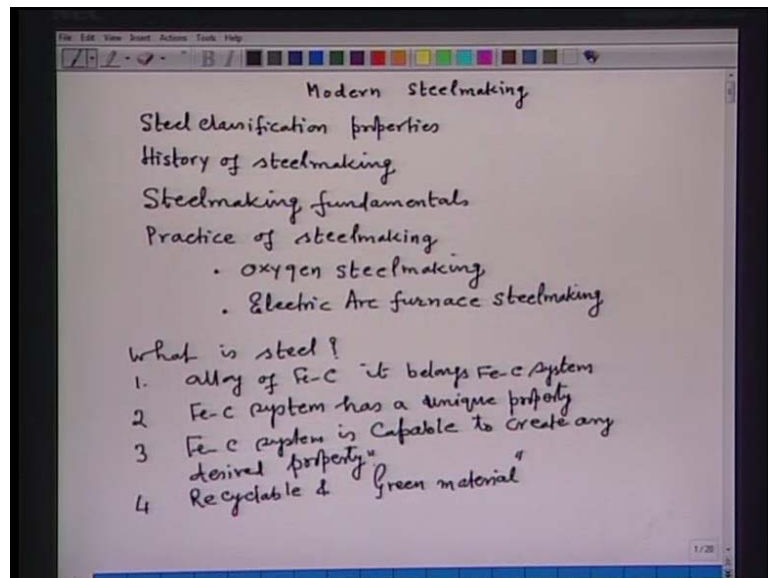 File Edit View Insert Actions Tools Help
B I
Modern Steelmaking
Steel classification properties
History of steelmaking
Steelmaking fundamentals
Practice of steelmaking
• Oxygen steelmaking
• Electric Arc furnace steelmaking
What is steel?
1. alloy of Fe-C it belongs Fe-C system
2 Fe-C system has a unique property
3 Fe-C system is Capable to create any
desired property"
4 Recyclable & Green material"
1/20